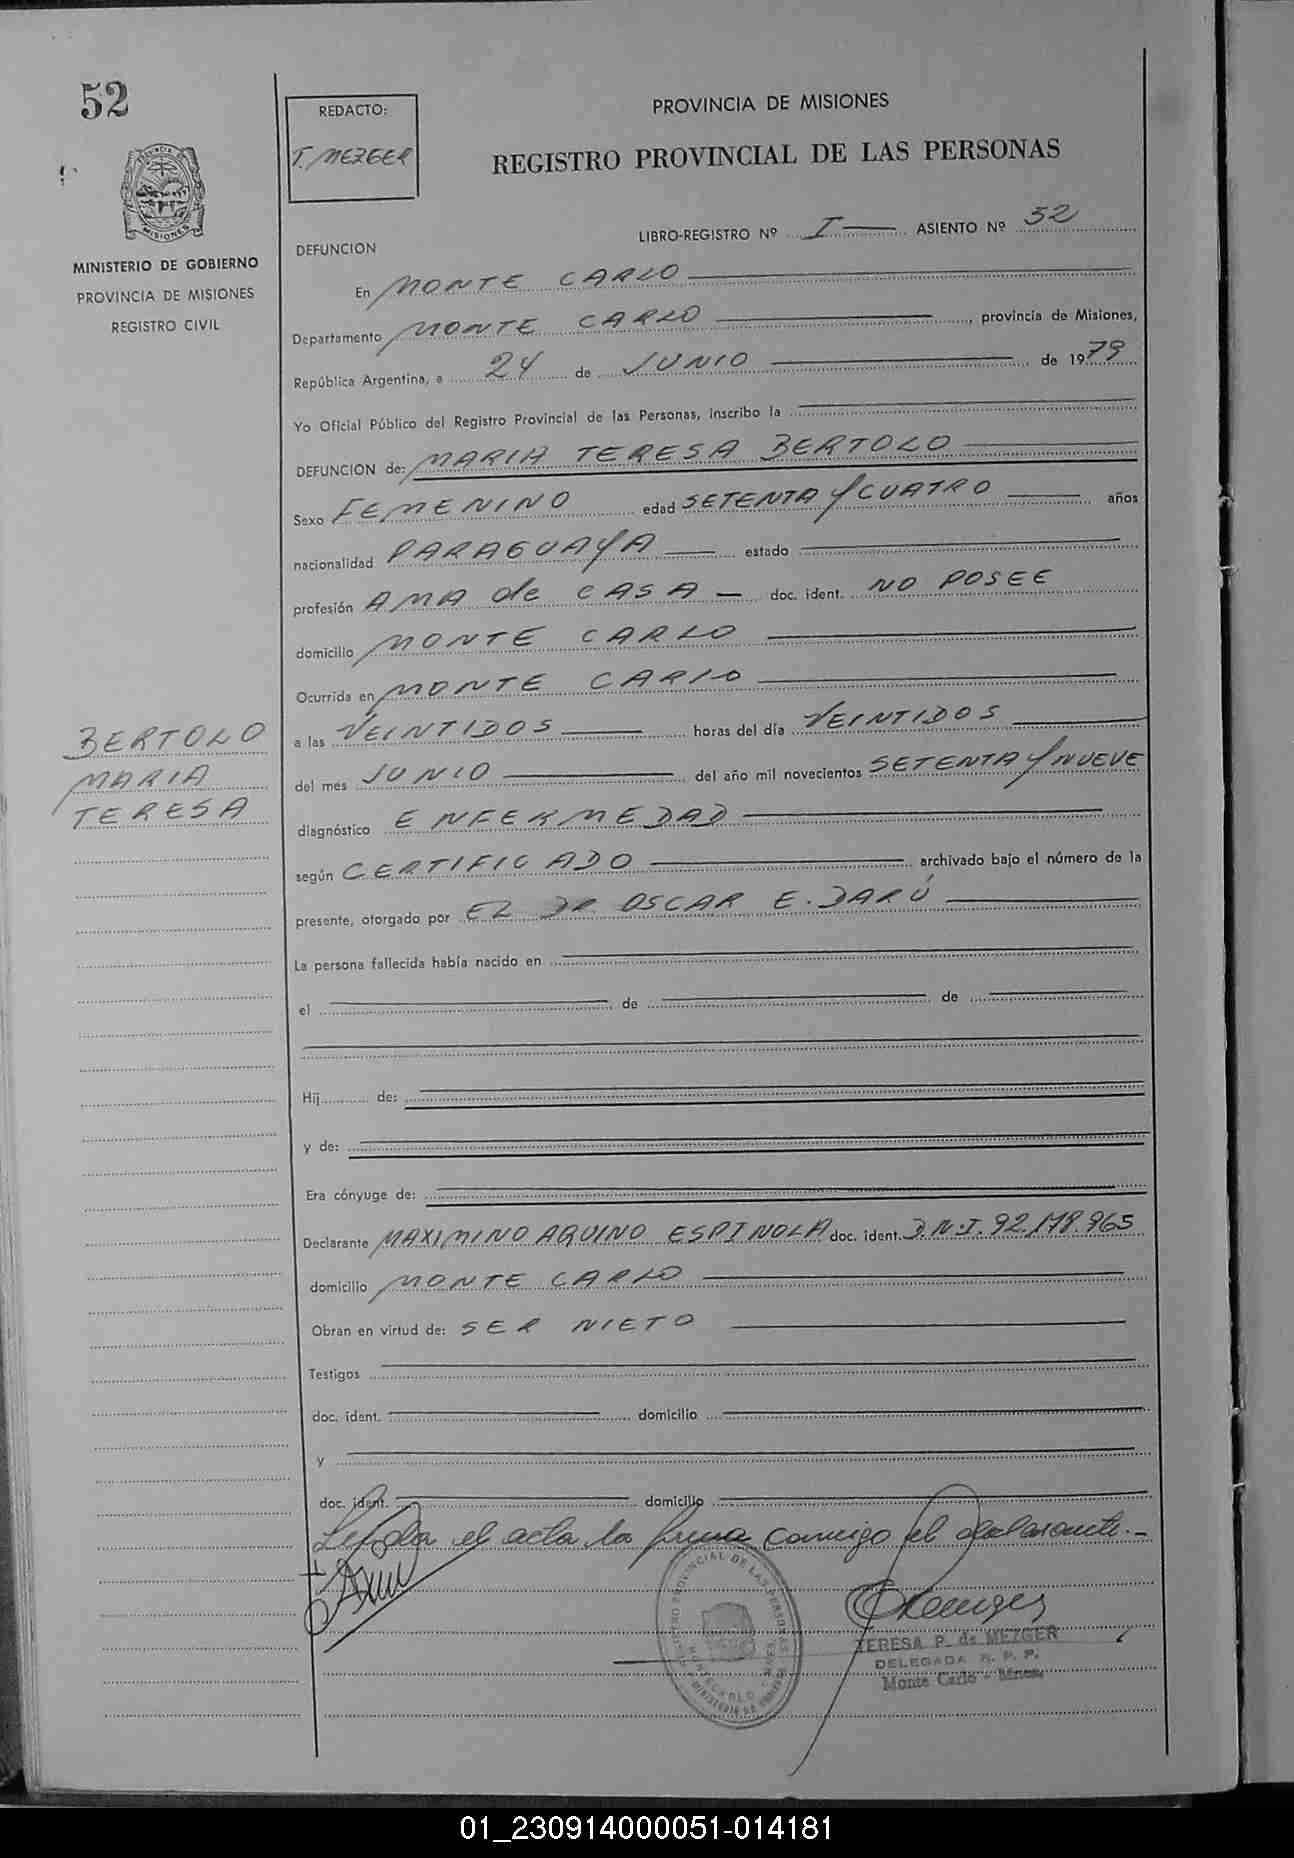 52
REDACTO:
T. MEZGER
PROVINCIA DE MISIONES
REGISTRO PROVINCIAL DE LAS PERSONAS
PROVINCIA DE
MISIONES
MINISTERIO DE GOBIERNO
PROVINCIA DE MISIONES
REGISTRO CIVIL
LIBRO-REGISTRO Nº I ASIENTO Nº 52
DEFUNCION
En MONTE CARLO
Departamento MONTE CARLO, provincia de Misiones,
República Argentina, a 24 de JUNIO de 1979
Yo Oficial Público del Registro Provincial de las Personas, inscribo la
DEFUNCION de: MARIA TERESA BERTOLO
Sexo FEMENINO edad SETENTA Y CUATRO años
nacionalidad PARAGUAYA estado
profesión AMA de CASA - doc. ident. NO POSEE
domicilio MONTE CARLO
Ocurrida en MONTE CARLO
a las VEINTIDOS horas del día VEINTIDOS
del mes JUNIO del año mil novecientos SETENTA Y NUEVE
diagnóstico ENFERMEDAD
según CERTIFICADO archivado bajo el número de la
presente, otorgado por EL DR. OSCAR E. DARÚ
La persona fallecida había nacido en
el de de
Hij de:
y de:
Era cónyuge de:
Declarante MAXIMINO AQUINO ESPINOLA doc. ident. D.N.I. 92.178.965
domicilio MONTE CARLO
Obran en virtud de: SER NIETO
Testigos
doc. ident. domicilio
y
doc. ident. domicilio
BERTOLO
MARIA
TERESA
Leída el acta la firma conmigo el declarante.-
TERESA P. de MEZGER
DELEGADA R. P. P.
Monte Carlo - Mnes.
01_230914000051-014181